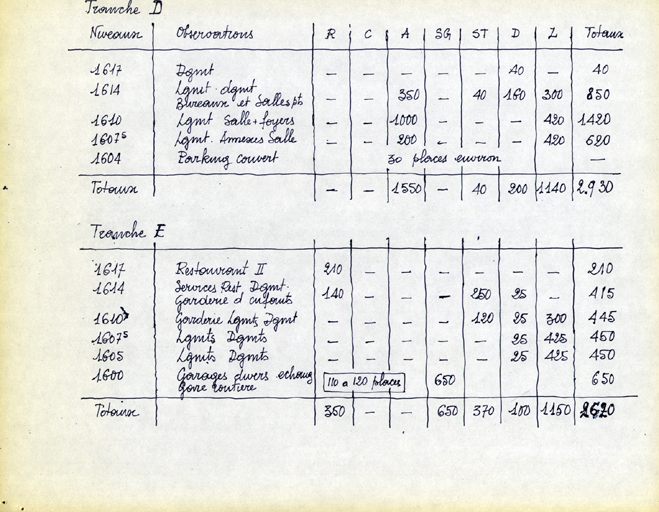 Tranche D
Niveaux Observations R C A SG ST D L Totaux
1617 Dgmt – – – – – 40 – 40
1614 Lgmt dgmt
Bureaux et Salles pts – – 350 – 40 160 300 850
1610 Lgmt Salle + foyers – – 1000 – – – 420 1420
1607⁵ Lgmt. Annexes Salle – – 200 – – – 420 620
1604 Parking couvert 30 places environ —
Totaux – – 1550 – 40 200 1140 2.930
Tranche E
1617 Restaurant II 210 – – – – – – 210
1614 Services Rest. Dgmt.
Garderie d'enfants 140 – – – 250 25 – 415
1610 Garderie Lgmts Dgmt – – – – 120 25 300 445
1607⁵ Lgmts Dgmts – – – – – 25 425 450
1605 Lgmts Dgmts – – – – – 25 425 450
1600 Garages divers
Gare routière 110 a 120 places 650 650
Totaux 350 – – 650 370 100 1150 2620